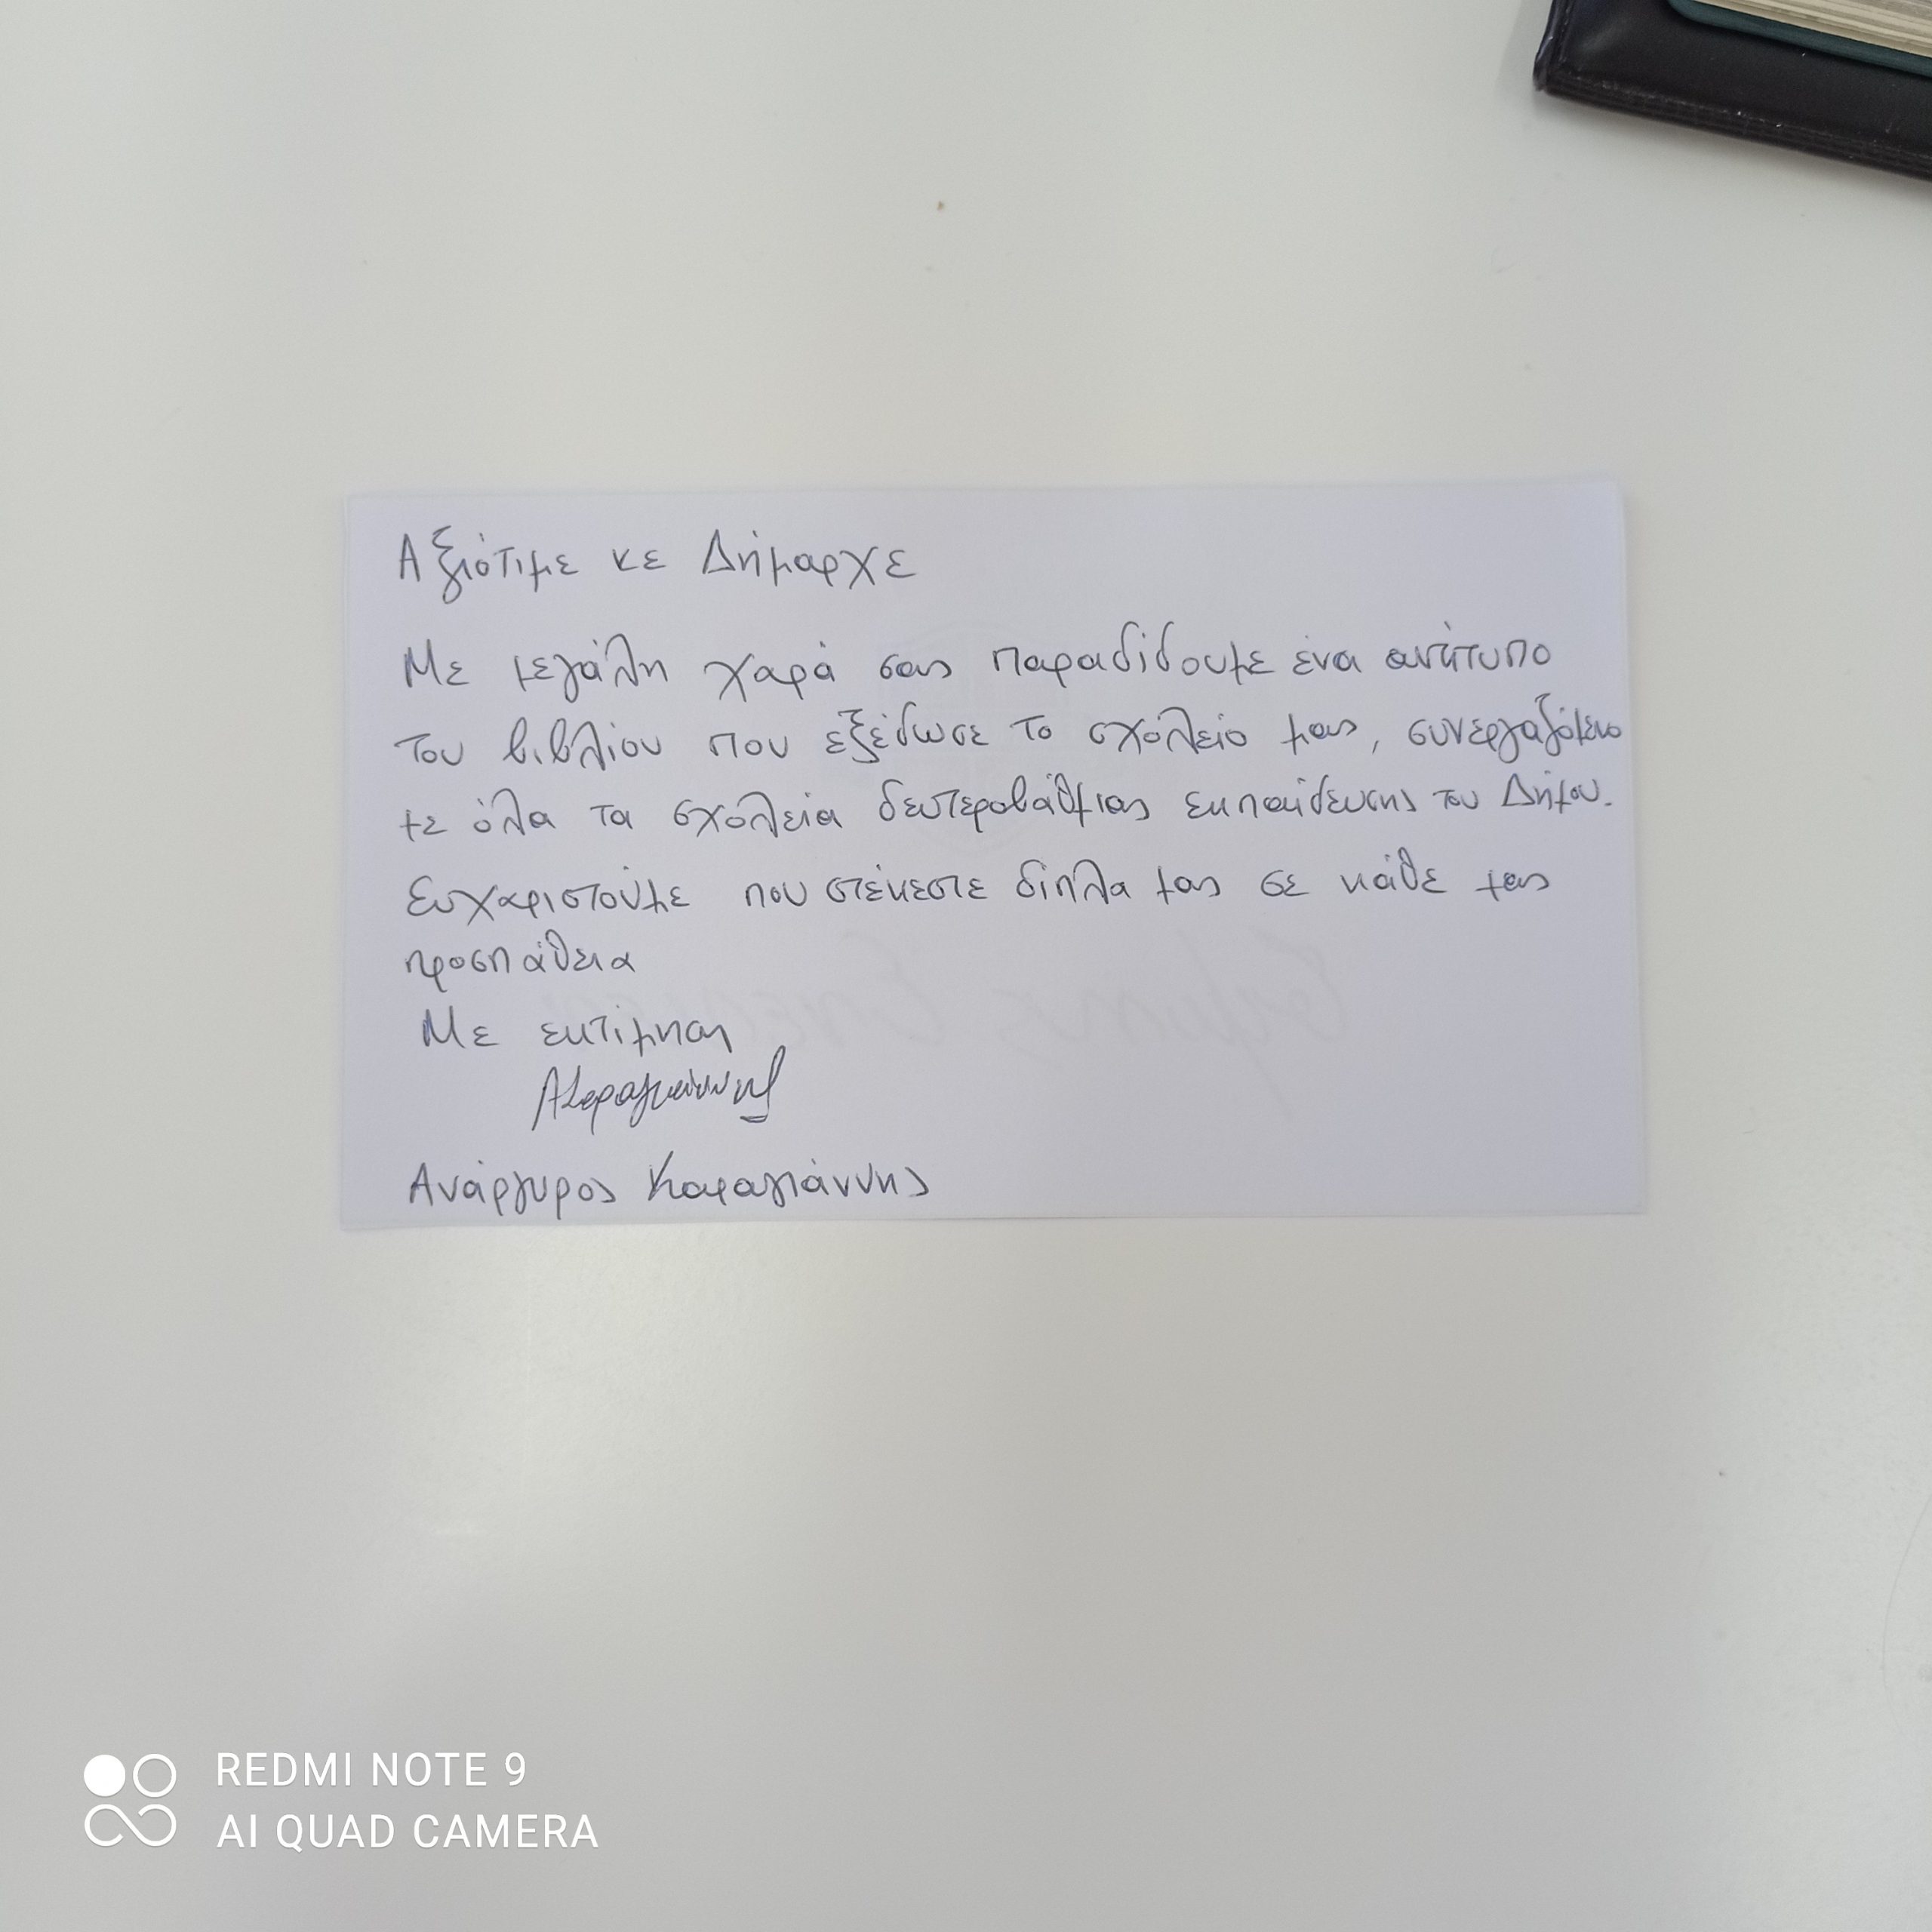 Αξιότιμε κε Δήμαρχε
Με μεγάλη χαρά σας παραδίδουμε ένα αντίτυπο
του βιβλίου που εξέδωσε το σχολείο μας, συνεργαζόμενο
με όλα τα σχολεία δευτεροβάθμιας εκπαίδευσης του Δήμου.
Ευχαριστούμε που στέκεστε δίπλα μας σε κάθε μας
προσπάθεια
Με εκτίμηση
ΑΚαραγιάννης
Ανάργυρος Καραγιάννης
REDMI NOTE 9
AI QUAD CAMERA